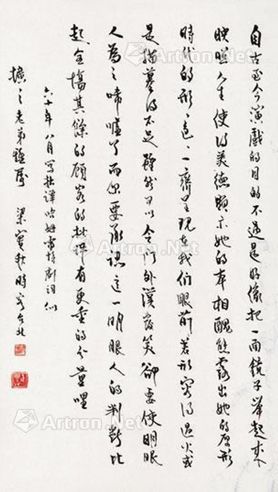 自古至今演戲的目的不過是好像把一面鏡子舉起來
映照人生使得美德顯示她的本相醜態露出她的原形
時代的形色一齊呈現我們眼前若形容得過火或
是描摹得不足雖然可以令門外漢發笑卻要使明眼
人為之唏噓了而你要承認這一明眼人的判斷比
起全場其餘的顧客的批評有更重的分量哩
六十年八月寫拙譯哈姆雷特劇詞似
之老弟雅屬 梁實秋時客台北
Artron.Net